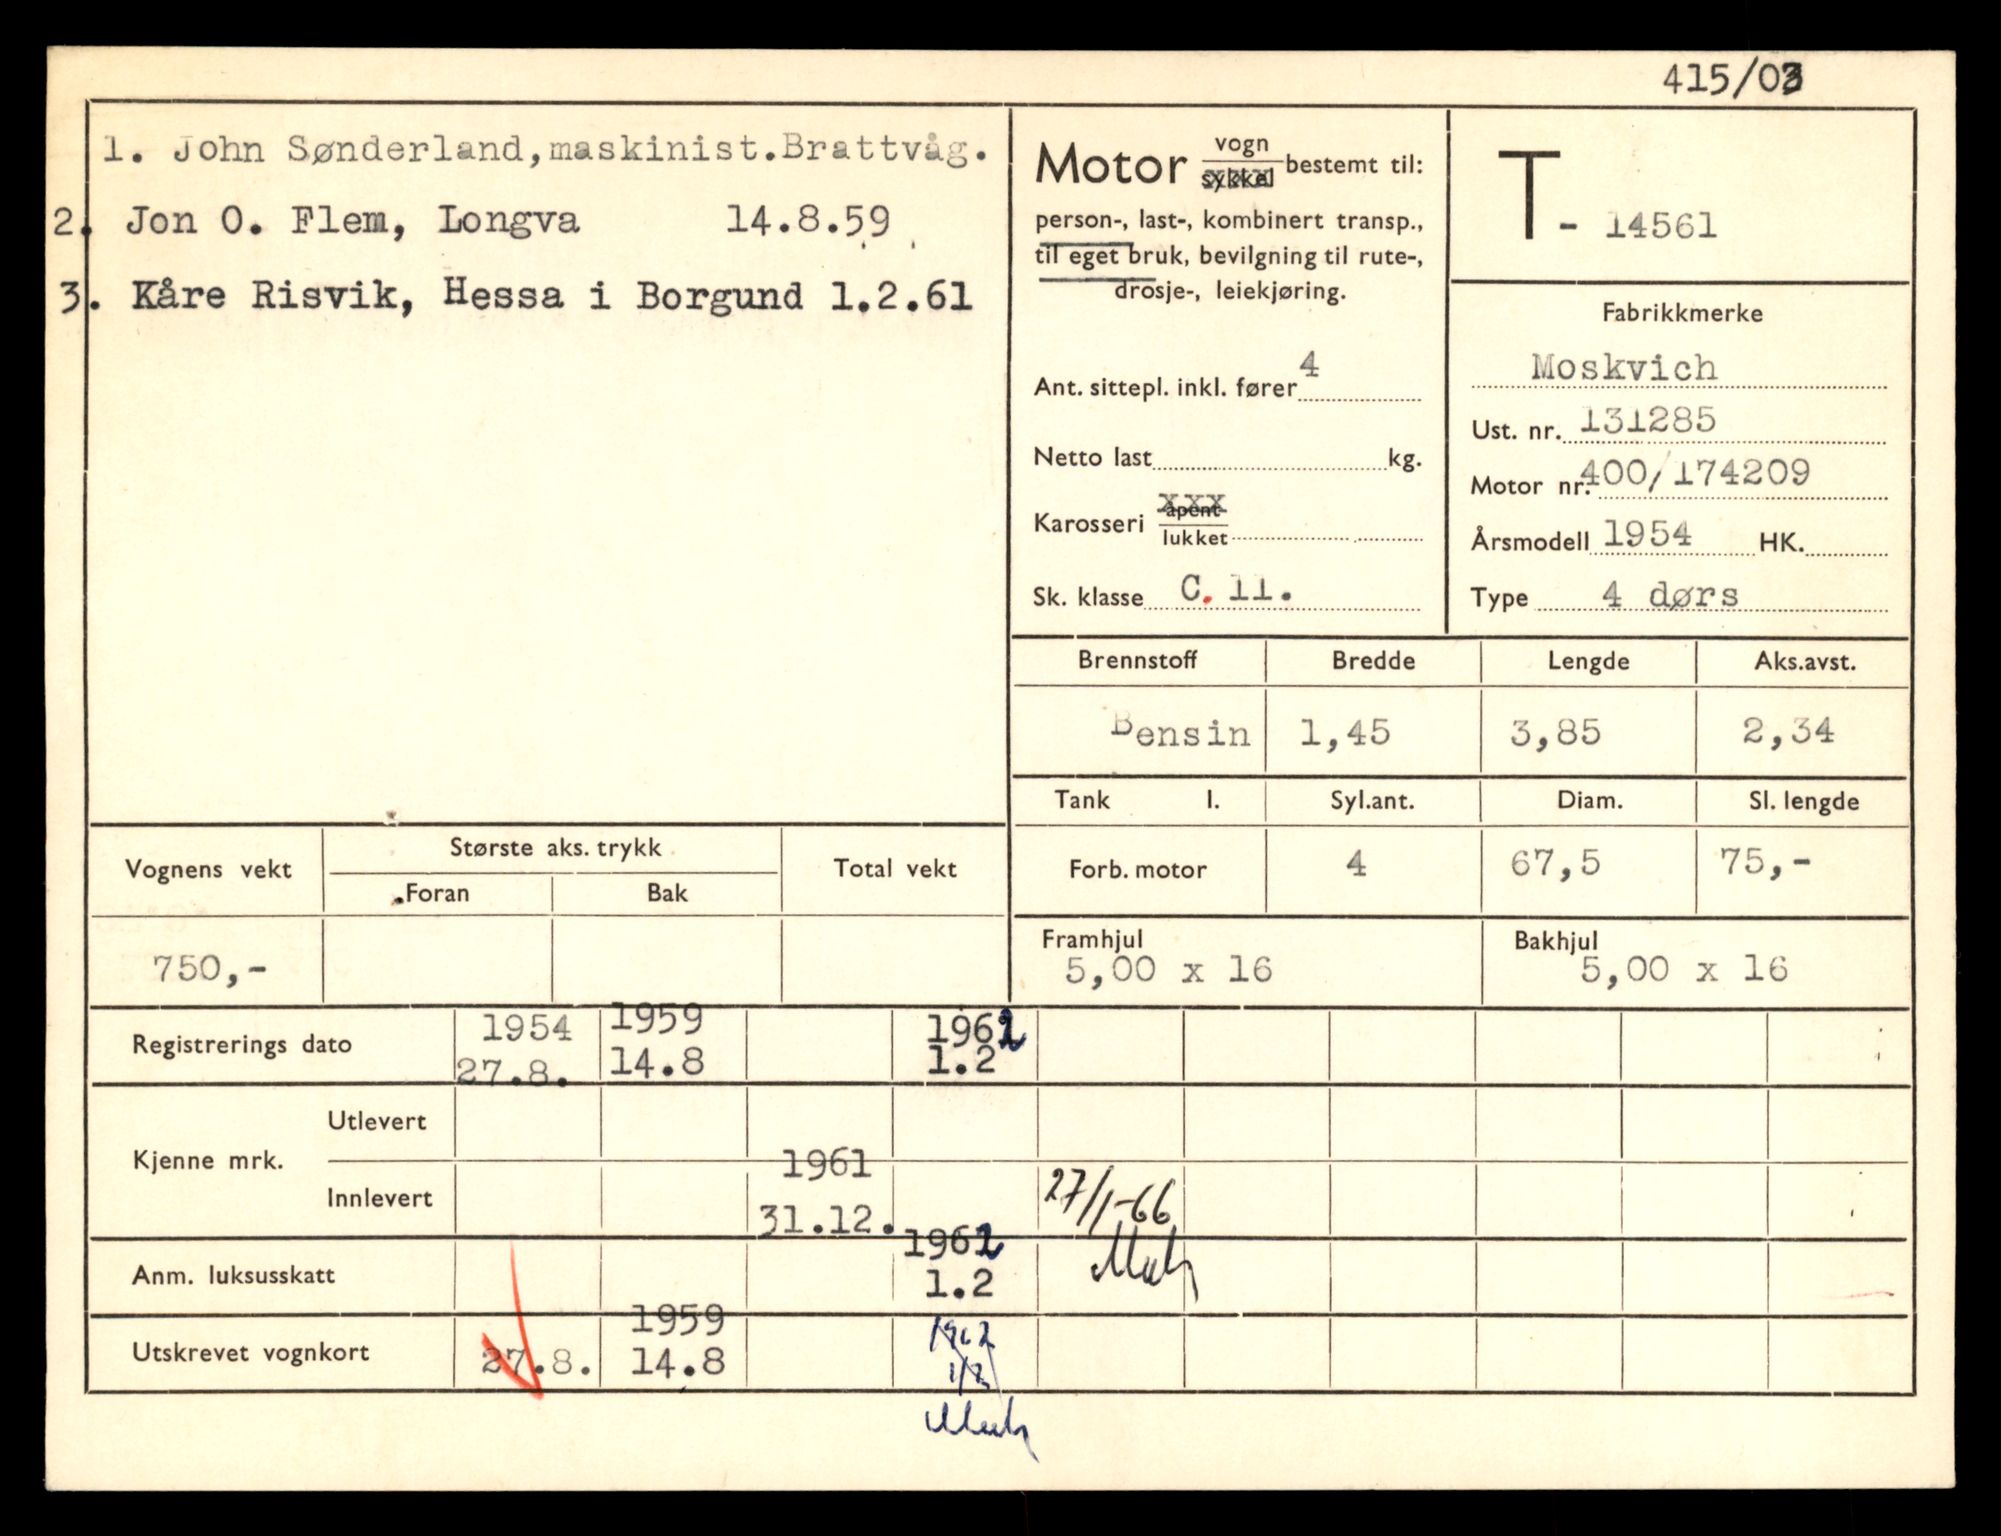 415/03
1. John Sønderland,maskinist.Brattvåg.
2. Jon O. Flem, Longva 14.8.59
3. Kåre Risvik, Hessa i Borgund 1.2.61
Motor vogn sykkel bestemt til:
person-, last-, kombinert transp.,
til eget bruk, bevilgning til rute-,
drosje-, leiekjøring.
Ant. sittepl. inkl. fører 4
Netto last kg.
Karosseri åpent lukket
Sk. klasse C. 11.
T- 14561
Fabrikkmerke
Moskvich
Ust. nr. 131285
Motor nr. 400/174209
Årsmodell 1954 HK.
Type 4 dørs
Brennstoff Bredde Lengde Aks.avst.
Bensin 1,45 3,85 2,34
Tank l. Syl.ant. Diam. Sl. lengde
Forb. motor 4 67,5 75,-
Framhjul Bakhjul
5,00 x 16 5,00 x 16
Vognens vekt Største aks. trykk Total vekt
Foran Bak
750,-
Registrerings dato 1954 1959 1962
27.8. 14.8 1.2
Kjenne mrk. Utlevert
Innlevert 1961 27/1-66
31.12.
Anm. luksusskatt 1962
1.2
Utskrevet vognkort 1959 1962
27.8. 14.8 1/2